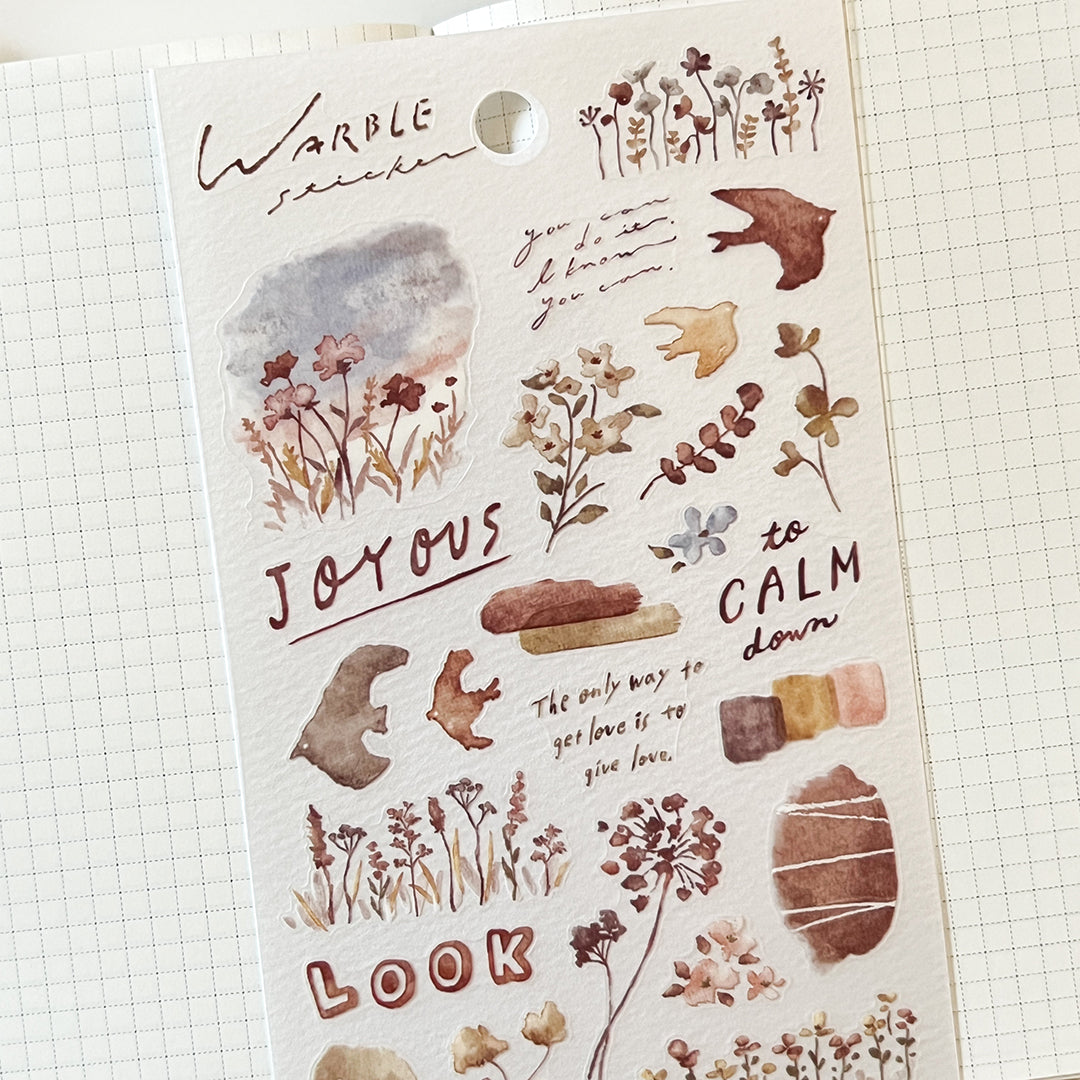 WARBLE
sticker
you can
do it.
I know
you can.
JOYOUS
to
CALM
down
The only way to
get love is to
give love.
LOOK